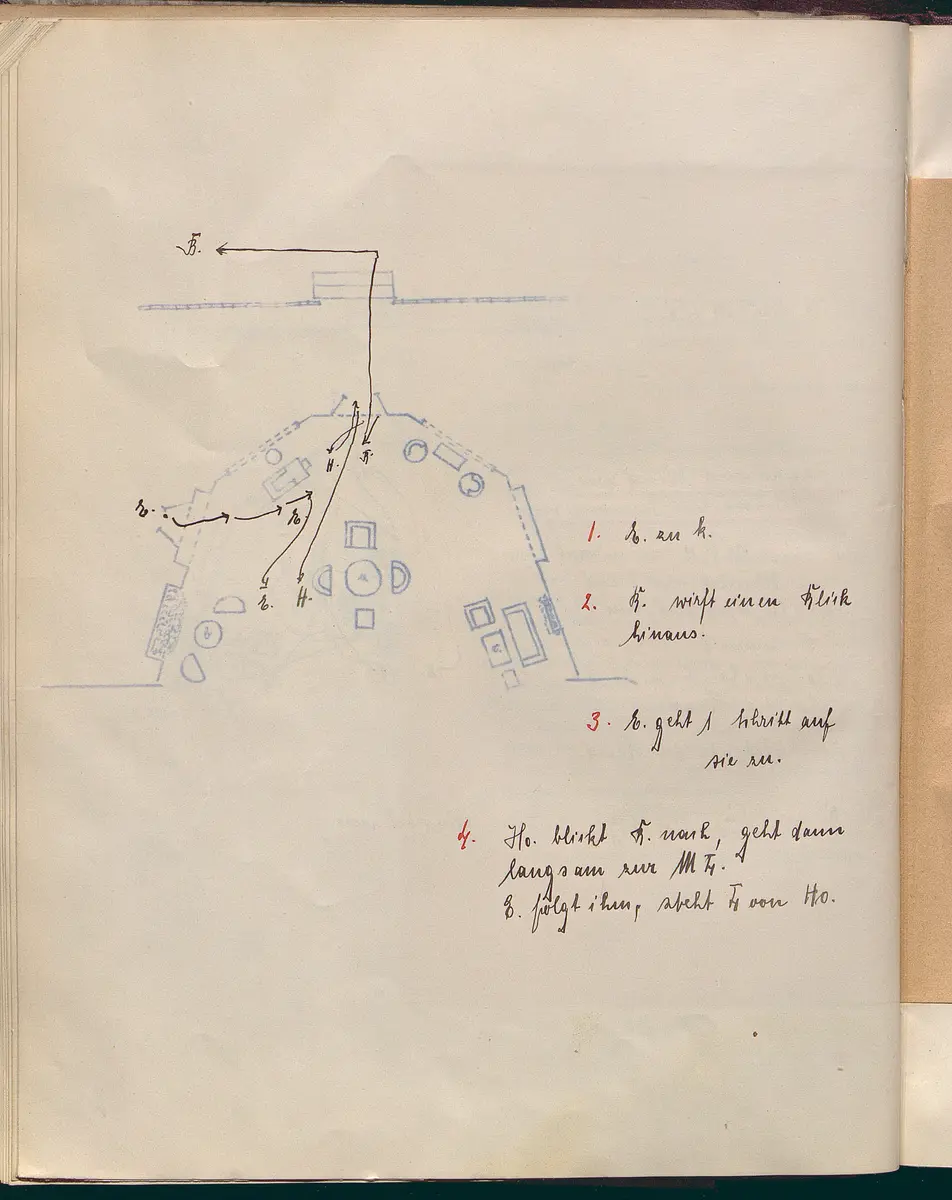 B.
H.
K.
E.
E.
E.
H.
1. E. zu K.
2. K. wirft einen Blick
hinaus.
3. E. geht 1 Schritt auf
sie zu.
4. Ho. blickt K. nach, geht dann
langsam zur M
E. folgt ihm, steht von Ho.